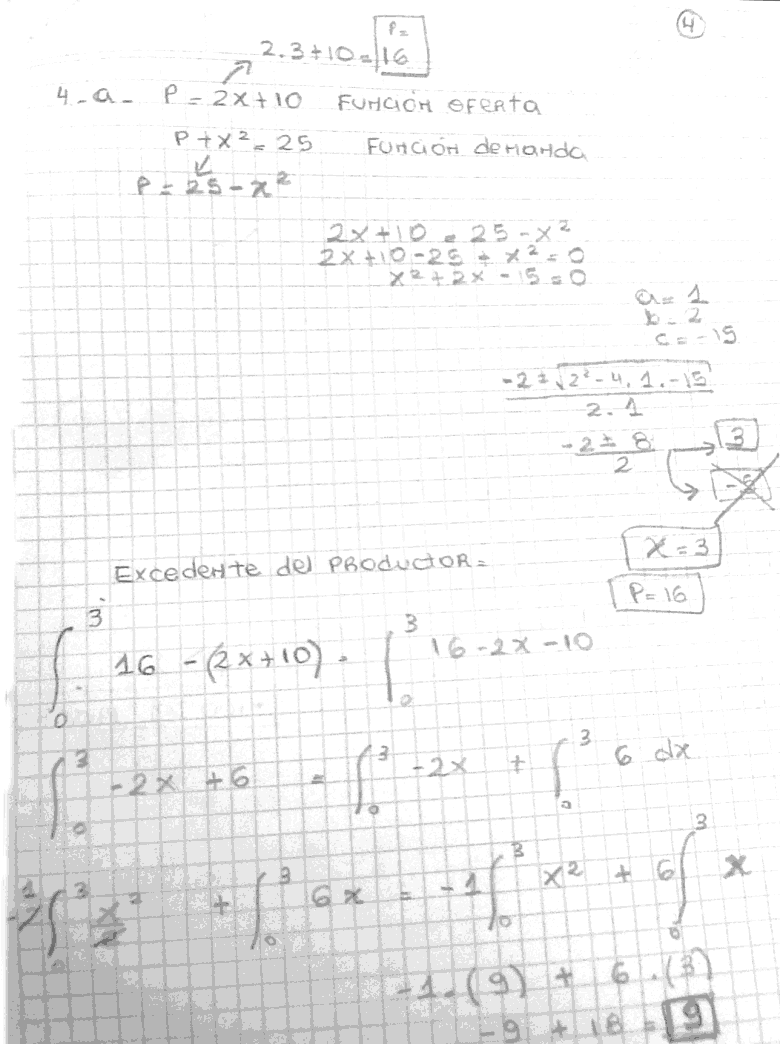 4
P=
2.3+10=16
4-a- P=2x+10 FUNCIÓN OFERTA
P+x²=25 FUNCIÓN deMANda
P=25-x²
2x+10=25-x²
2x+10-25+x²=0
x²+2x-15=0
a=1
b=2
c=-15
-2±√2²-4.1.-15
2.1
-2±8 3
2 -5
x=3
Excedente del PRODUCTOR=
P=16
∫₀³ 16-(2x+10) = ∫₀³ 16-2x-10
∫₀³ -2x+6 = ∫₀³ -2x + ∫₀³ 6 dx
-2∫₀³ x²/2 + ∫₀³ 6x = -1∫₀³ x² + 6∫₀³ x
-1.(9) + 6.(3)
-9+18=9